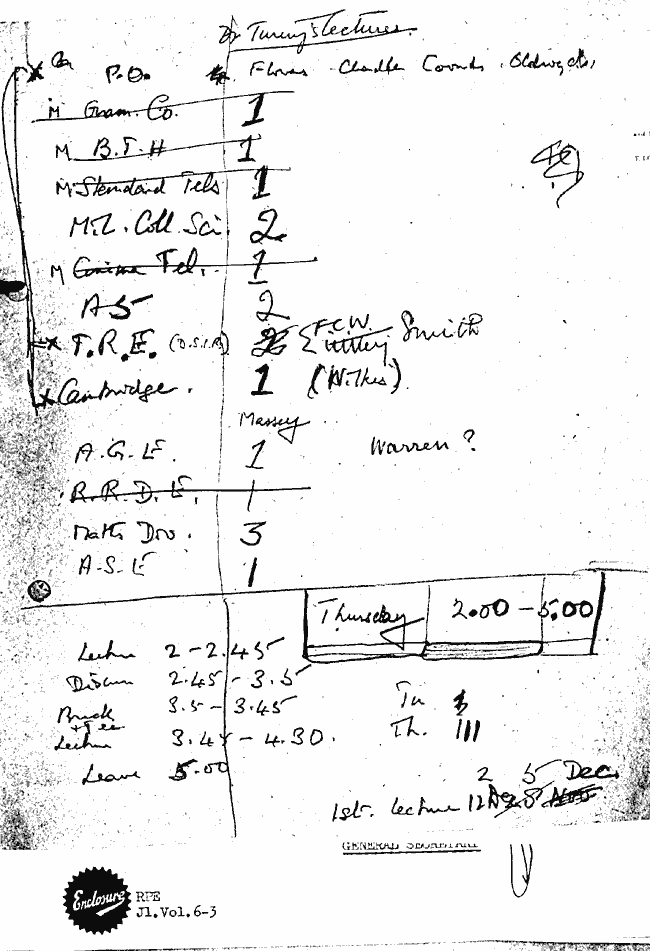 Dr Turing's Lectures.
P.O. Flowers Chandler Coombs
M Gram. Co. 1
M B.T.H 1
M Standard Tels 1
Mil. Coll. Sci. 2
M Tel. 1
AS 2
x T.R.E. (D.S.I.R) 2 F.C.W. Smith
x Cambridge. 1 (Wilkes)
Massey
A.G.E. 1 Warren ?
R.R.D.E. 1
Maths Div. 3
A.S.E 1
Thursday 2.00 - 5.00
Lecture 2 - 2.45
Discuss 2.45 - 3.5
Break + Tea 3.5 - 3.45
Lecture 3.45 - 4.30.
Leave 5.00
Tu
Th. III
2 5 Dec
1st. Lecture 12
GENERAL SECRETARY
Enclosure
RPE
J1.Vol.6-3